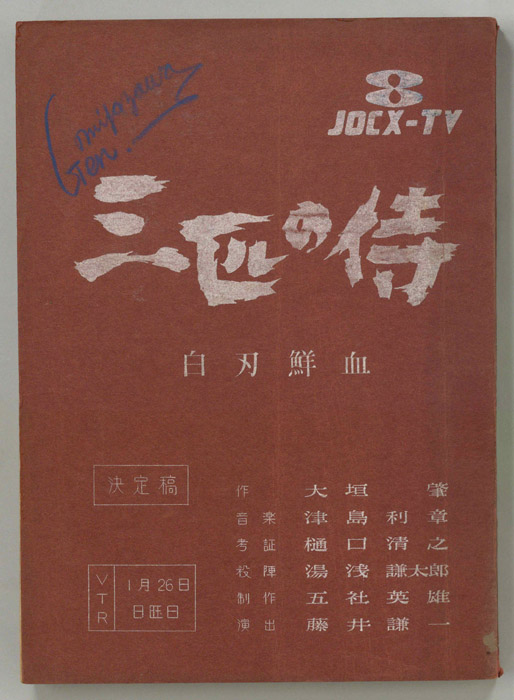 Gen. miyazawa
8
JOCX-TV
三匹の侍
白刃鮮血
決定稿
作 大垣肇
音楽 津島利章
考証 樋口清之
殺陣 湯浅謙太郎
制作 五社英雄
演出 藤井謙一
VTR 1月26日
日曜日